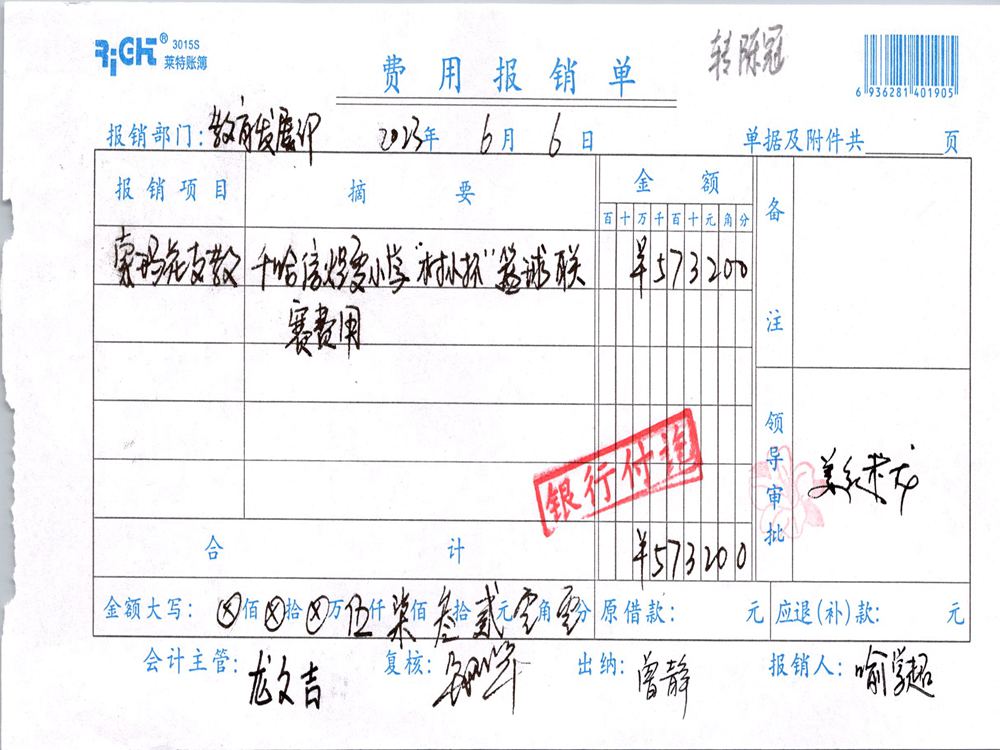 RiGHT® 3015S
莱特账簿
转陈冠
费用报销单
6 936281 401905
报销部门: 教育发展部 2023年 6月 6日 单据及附件共 页
报销项目 摘要 金额 备注
百十万千百十元角分
支教 千哈 小学"树小杯"篮球联 ¥573200
赛费用
银行付讫
领导审批
合计 ¥573200
金额大写: ⊗佰⊗拾⊗万伍仟柒佰叁拾贰元零角零分 原借款: 元 应退(补)款: 元
会计主管: 龙文吉 复核: 出纳: 曾静 报销人: 喻学超